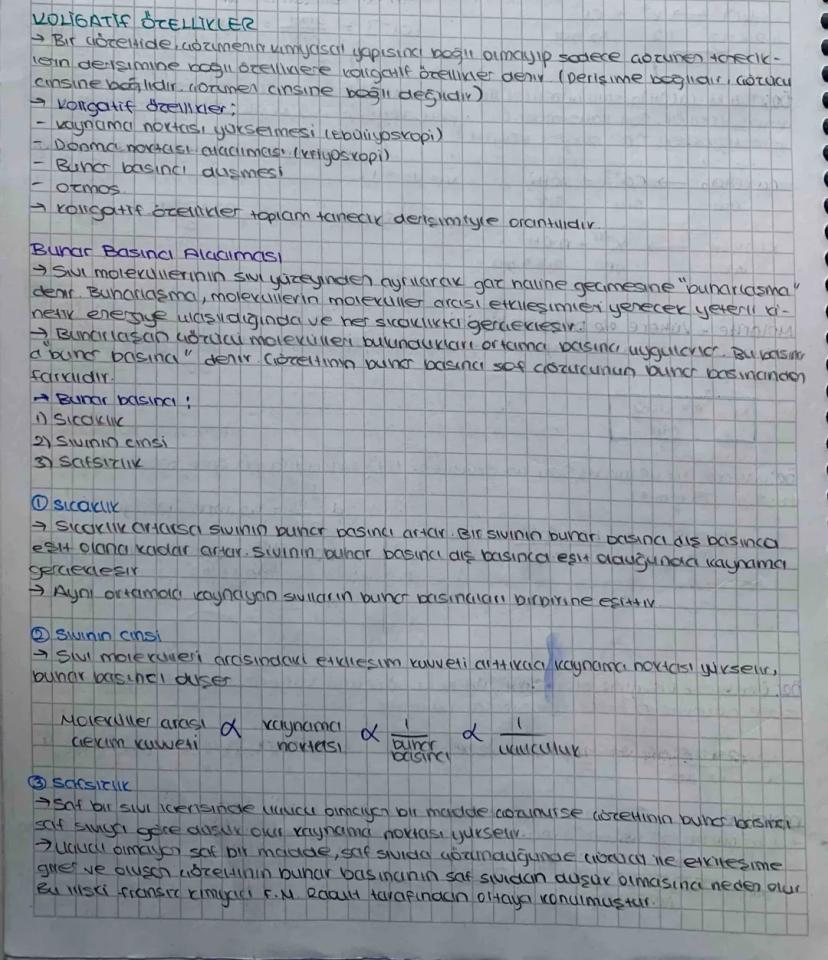 KOLİGATİF ÖZELLİKLER
→ Bir çözeltide, çözünenin kimyasal yapısına bağlı olmayıp sadece çözünen tanecik-
lerin derişimine bağlı özelliklere koligatif özellikler denir (Derişime bağlıdır, çözücü
cinsine bağlıdır. çözünen cinsine bağlı değildir)
→ Koligatif özellikler;
- Kaynama noktası yükselmesi (ebuliyoskopi)
- Donma noktası alçalması (kriyoskopi)
- Buhar basıncı düşmesi
- Ozmos
→ Koligatif özellikler toplam tanecik derişimiyle orantılıdır.
Buhar Basıncı Alçalması
→ Sıvı moleküllerinin sıvı yüzeyinden ayrılarak gaz haline geçmesine "buharlaşma"
denir. Buharlaşma, moleküllerin moleküller arası etkileşimleri yenecek yeterli ki-
netik enerjiye ulaşıldığında ve her sıcaklıkta gerçekleşir.
→ Buharlaşan çözücü molekülleri bulundukları ortama basınç uygularlar. Bu basın-
ca "buhar basıncı" denir. Çözeltinin buhar basıncı saf çözücünün buhar basıncından
farklıdır.
→ Buhar basıncı;
1) Sıcaklık
2) Sıvının cinsi
3) Safsızlık
① Sıcaklık
→ Sıcaklık artarsa sıvının buhar basıncı artar. Bir sıvının buhar basıncı dış basınca
eşit olana kadar artar. Sıvının buhar basıncı dış basınca eşit olduğunda kaynama
gerçekleşir
→ Aynı ortamda kaynayan sıvıların buhar basınçları birbirine eşittir.
② Sıvının cinsi
→ Sıvı molekülleri arasındaki etkileşim kuvveti arttıkça kaynama noktası yükselir,
buhar basıncı düşer
Moleküller arası çekim kuvveti ∝ kaynama noktası ∝ 1/buhar basıncı ∝ 1/uçuculuk
③ Safsızlık
→ Saf bir sıvı içerisinde uçucu olmayan bir madde çözünürse çözeltinin buhar basıncı
saf sıvıya göre düşük olur kaynama noktası yükselir.
→ Uçucu olmayan saf bir madde, saf sıvıda çözündüğünde çözücü ile etkileşime
girer ve oluşan çözeltinin buhar basıncının saf sıvıdan düşük olmasına neden olur
Bu ilişki fransız kimyacı F.M. Raoult tarafından ortaya konulmuştur.